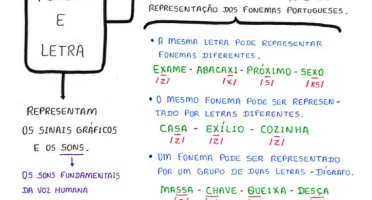 E
LETRA
REPRESENTAM
OS SINAIS GRÁFICOS
E OS SONS.
OS SONS FUNDAMENTAIS
DA VOZ HUMANA
REPRESENTAÇÃO DOS FONEMAS PORTUGUESES.
• A MESMA LETRA PODE REPRESENTAR
FONEMAS DIFERENTES.
EXAME - ABACAXI - PRÓXIMO - SEXO
/Z/ /X/ /S/ /KS/
• O MESMO FONEMA PODE SER REPRESEN-
TADO POR LETRAS DIFERENTES.
CASA - EXÍLIO - COZINHA
/Z/ /Z/ /Z/
• UM FONEMA PODE SER REPRESENTADO
POR UM GRUPO DE DUAS LETRAS - DÍGRAFO.
MASSA - CHAVE - QUEIXA - DESÇA